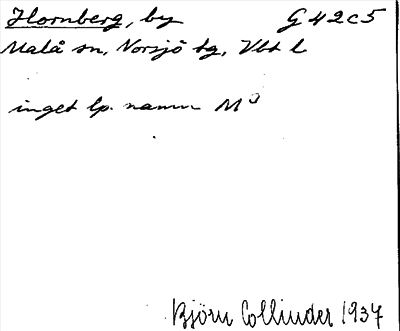 Hornberg, by G 42c5
Malå sn, Norsjö tg, Vbt l
inget lp. namn M
Björn Collinder 1937